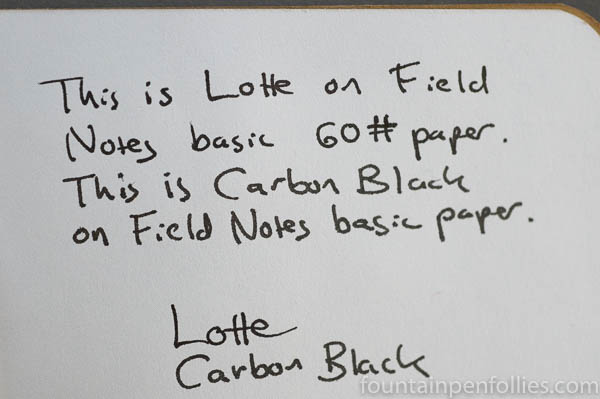 This is Lotte on Field
Notes basic 60# paper.
This is Carbon Black
on Field Notes basic paper.
Lotte
Carbon Black
fountainpenfollies.com